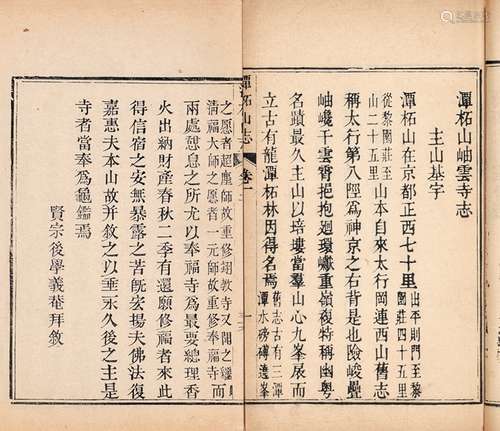 潭柘山岫雲寺志
主山基宇
潭柘山在京都正西七十里出平則門至黎
園莊四十五里
從黎園莊至潭柘
山二十五里山本自來太行岡連西山舊志
稱太行第八陘爲神京之右背是也險峻疊
岫巉干雲霄抱掬迴環巘重嶺複特稱幽粤
名蹟最久主山以培塿當羣山心九峯展而
立古有龍潭柘林因得名焉舊志古有三潭
潭水磅礴邃峯
潭柘山志
卷二
之愿者超塵師故重修翊教寺又開之
清福大師之愿者一元師故重修奉福寺而
兩處憩息之所尤以奉福寺爲最要總理香
火出納財產春秋二季有還願修福者來此
得信宿之安無暴露之苦旣安揚夫佛法復
嘉惠夫本山故幷敘之以垂永久後之主是
寺者當奉爲龜鑑焉
賢宗後學義菴拜敘